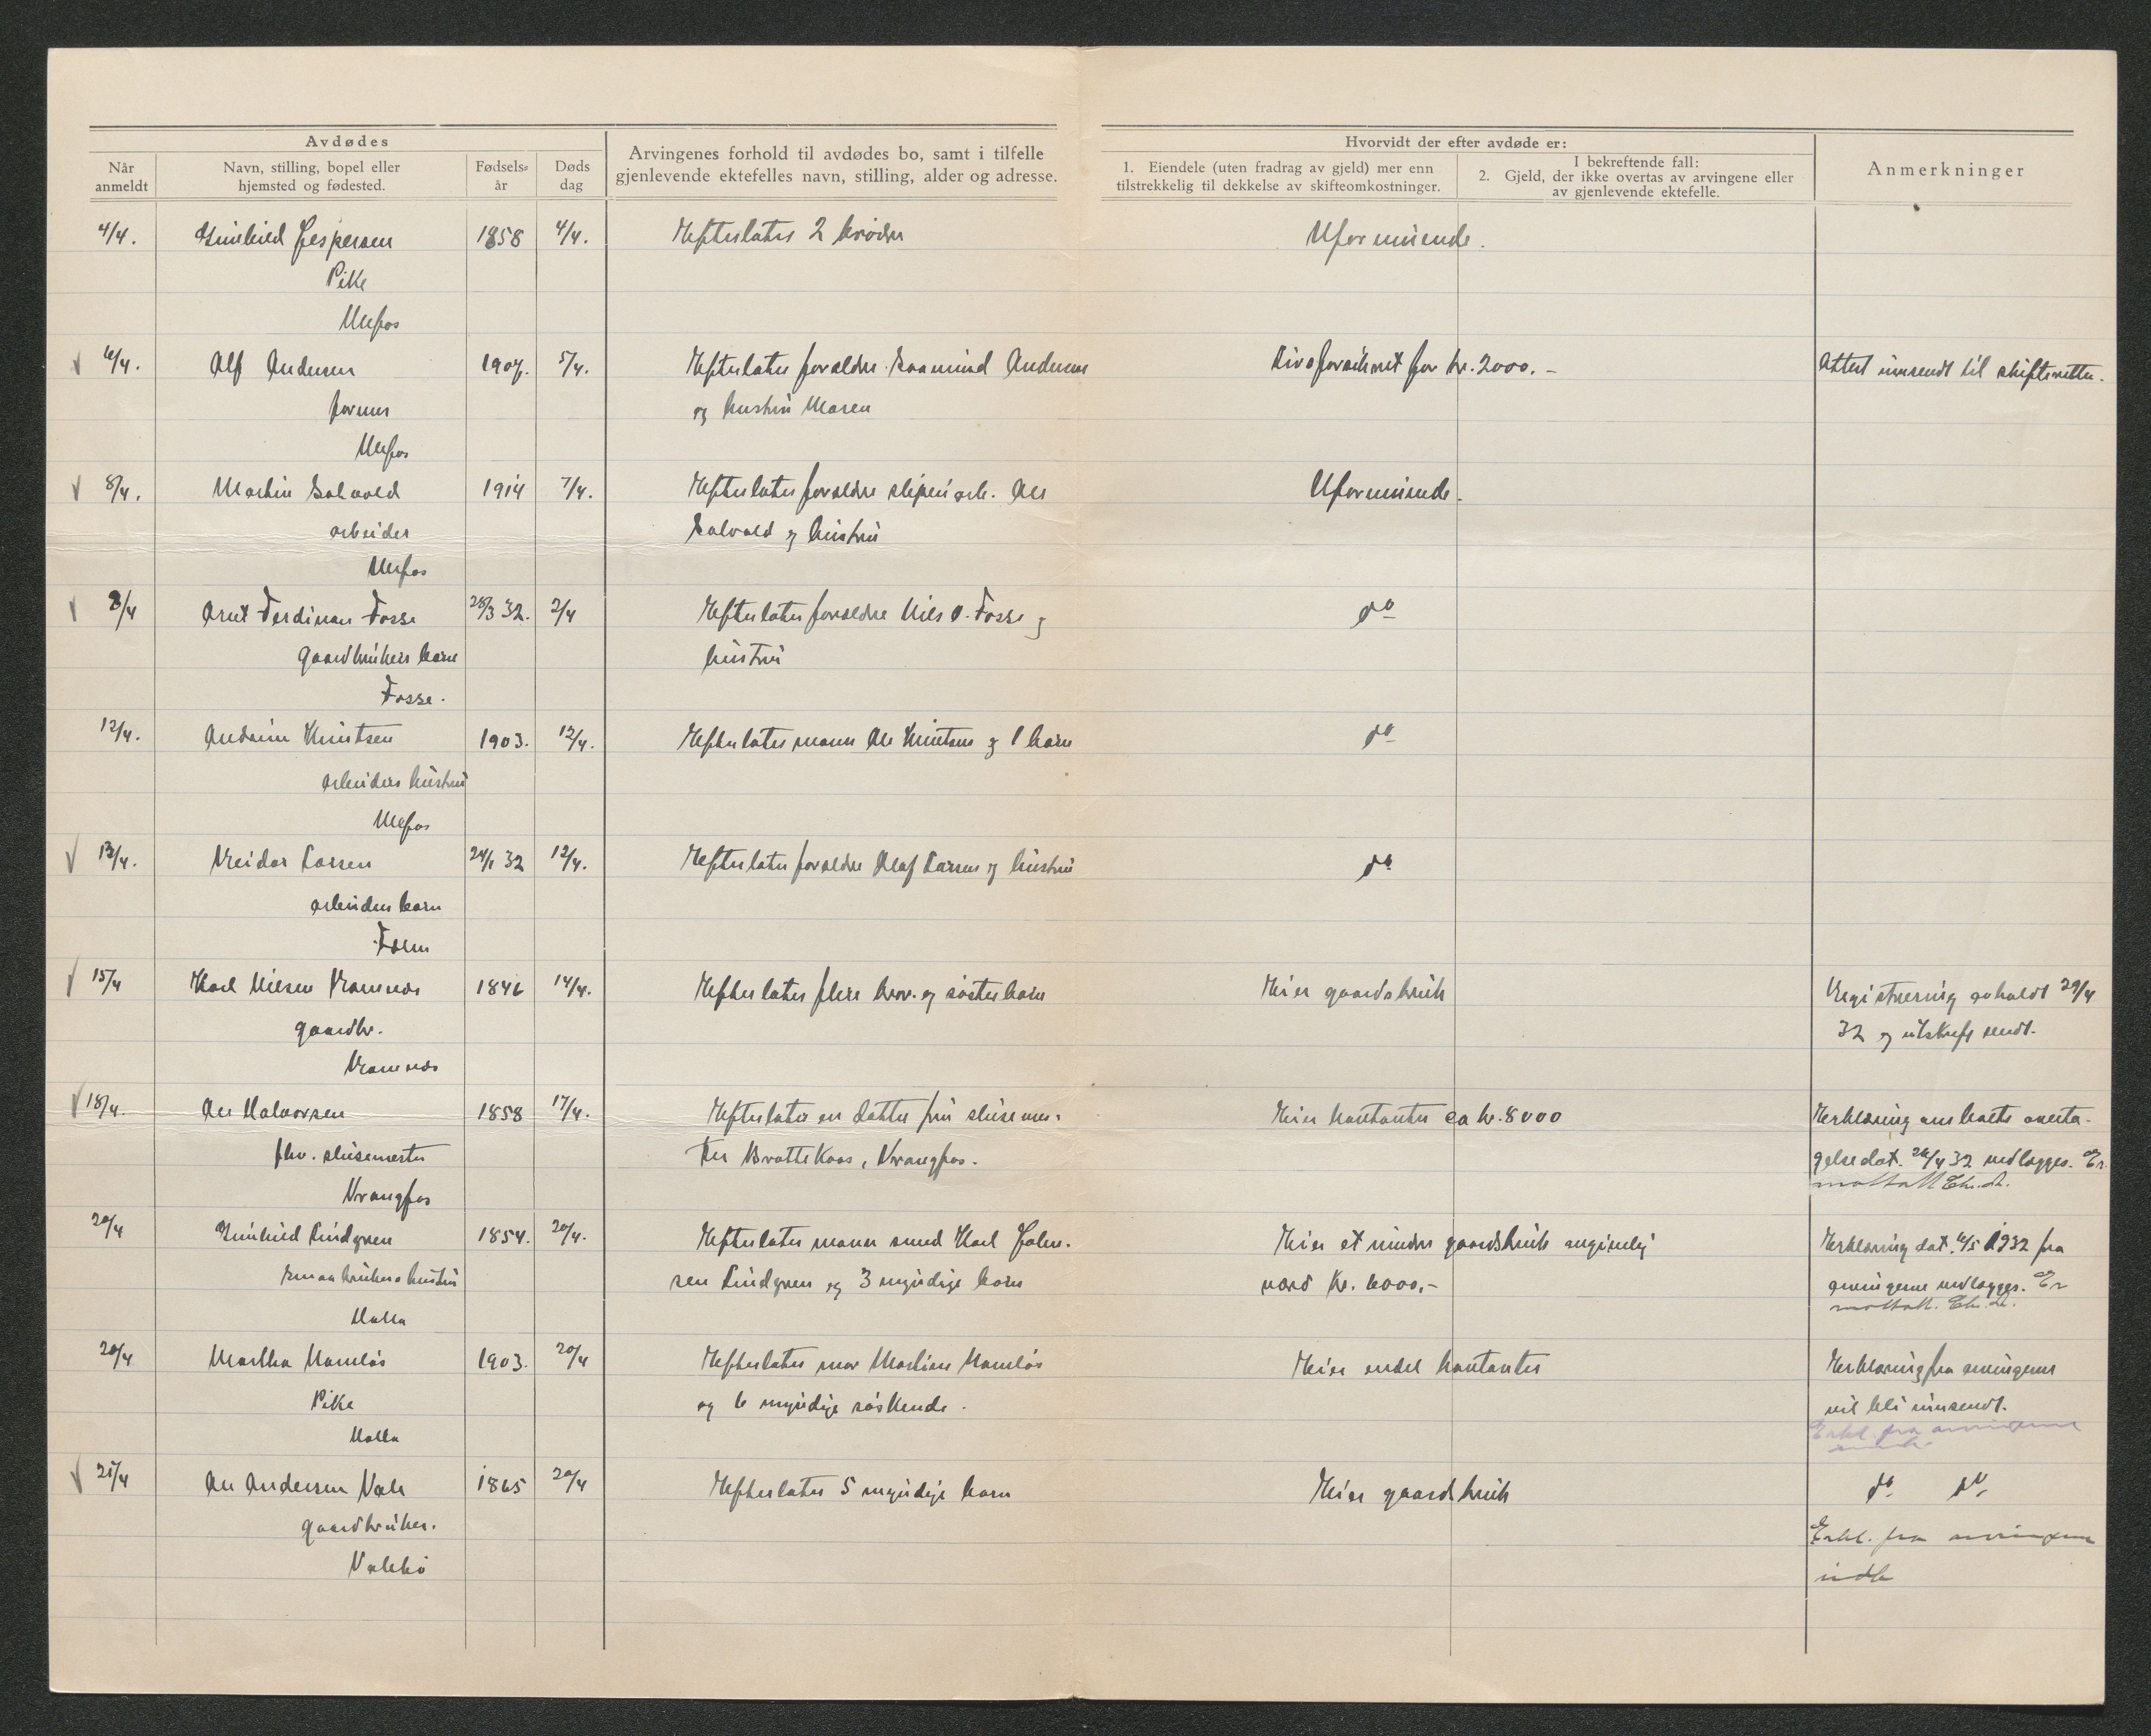 Avdødes
Når anmeldt
Navn, stilling, bopel eller hjemsted og fødested.
Fødsels= år
Døds dag
Arvingenes forhold til avdødes bo, samt i tilfelle gjenlevende ektefelles navn, stilling, alder og adresse.
Hvorvidt der efter avdøde er:
1. Eiendele (uten fradrag av gjeld) mer enn tilstrekkelig til dekkelse av skifteomkostninger.
I bekreftende fall:
2. Gjeld, der ikke overtas av arvingene eller av gjenlevende ektefelle.
Anmerkninger
4/4. Gunhild Jespersen 1858 4/4. Efterlater 2 brødre Uformuende.
Pike
Ulefos
6/4. Alf Andersen 1907. 5/4. Efterlater foreldre Gunnuind Andersen Livsforsikret for kr. 2000.- Attest innsendt til skifteretten.
former og hustru Maren
Ulefos
8/4. Martin Solvold 1914 7/4. Efterlater foreldre sliperiarb. Ole Uformuende.
arbeider Solvold og hustru
Ulefos
8/4 Arnt Ferdinan Fosse 28/3 32. 2/4 Efterlater foreldre Nils O. Fosse og do
gaardbrukers barn hustru
Fosse.
12/4. Andrine Knutsen 1903. 12/4. Efterlater mann Ole Knutsen og 1 barn do
arbeiders hustru
Ulefos
13/4. Reidar Larsen 24/1 32 12/4. Efterlater foreldre Olaf Larsen og hustru do
arbeiders barn
Foen
15/4 Karl Nilsen Romnes 1846 14/4. Efterlater flere bror- og søsterbarn Hei er gaardsbruk Registrering avholdt 29/4
gaardbr. 32 og utskrift sendt.
Romnes
18/4. Ole Halvorsen 1858 17/4. Efterlater en datter fru slusemes- Hei er kontanter ca kr. 8000 Erklæring om boets overta-
fhv. slusemester ter Brattekaas, Vrangfos. gelse dat. 26/4 32 vedlegges. Er
Vrangfos mottatt Chr. L.
20/4 Gunhild Lindgren 1854. 20/4. Efterlater mann smed Karl Johan- Hei er et mindre gaardsbruk angivelig Erklæring dat. 6/5 1932 fra
Smaabrukers hustru sen Lindgren og 3 myndige barn verd kr. 6000,- arvingene vedlegges. Er
Holla mottatt. Chr. L.
20/4 Martha Namløs 1903. 20/4 Efterlater mor Martine Namløs Hei er endel kontanter Erklæring fra arvingene
Pike og 6 myndige søskende. vil bli innsendt.
Holla Erkl. fra arvingene
21/4 Ole Andersen Vale 1865 20/4 Efterlater 5 myndige barn Hei er gaardsbruk do. do.
gaardbruker. Erkl. fra arvingene
Valebø indk